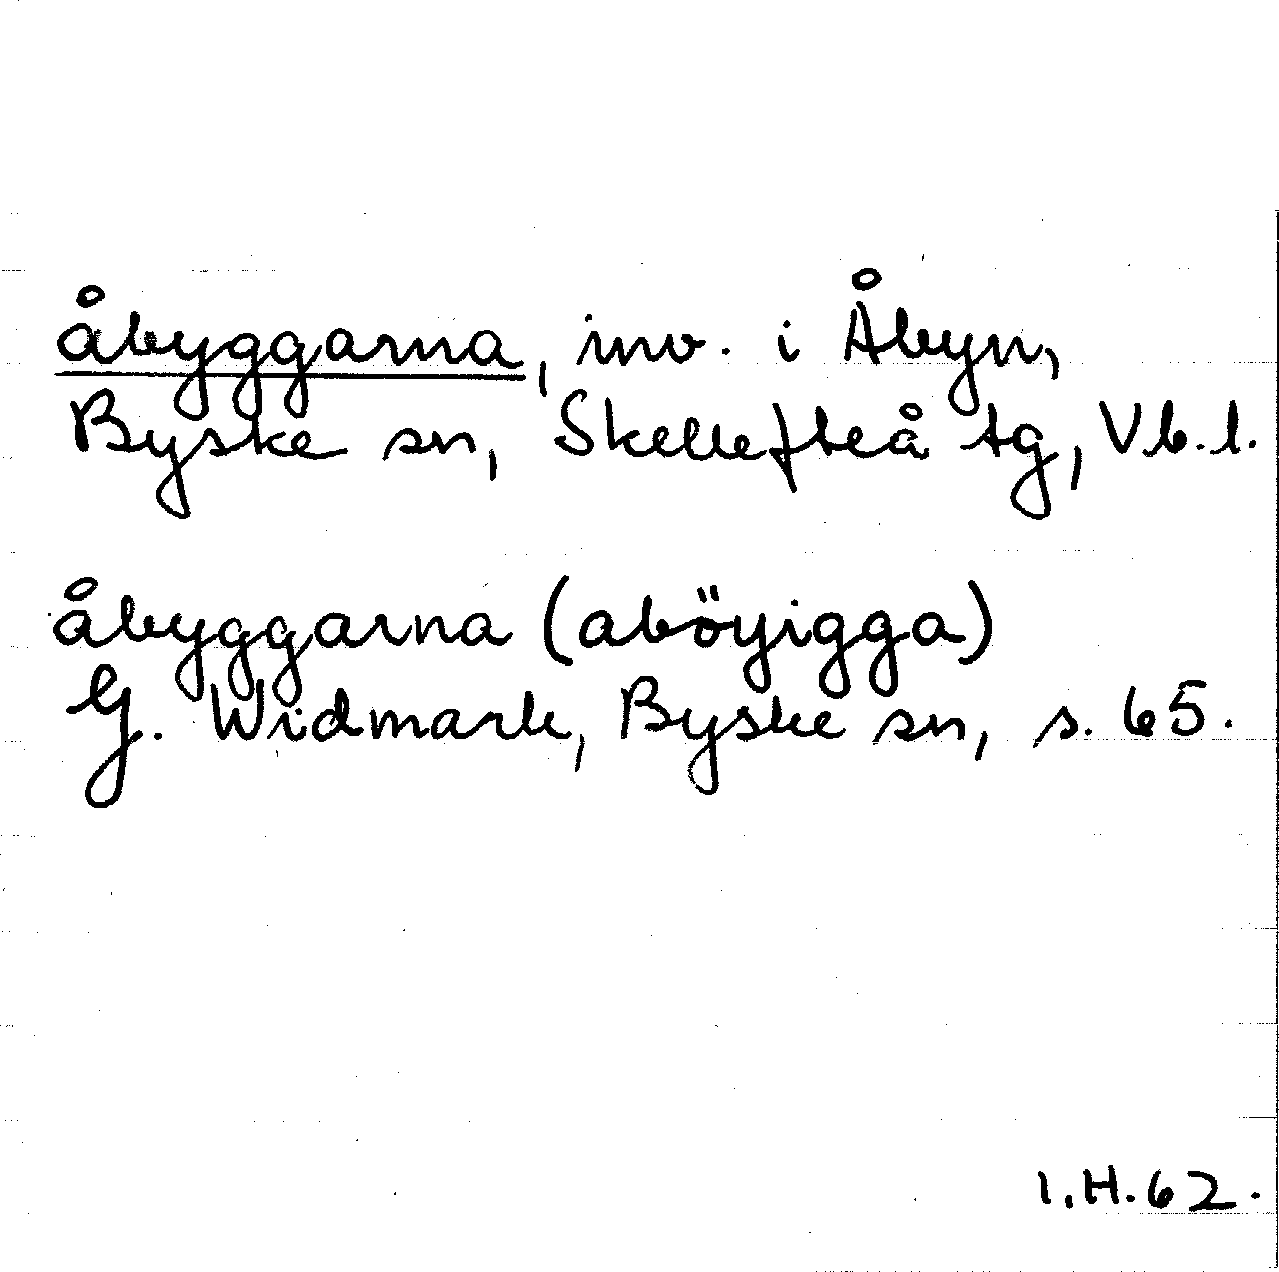 åbyggarna, inv. i Åbyn,
Byske sn, Skellefteå tg, Vb.l.
åbyggarna (aböyigga)
G. Widmark, Byske sn, s. 65.
I.H.62.